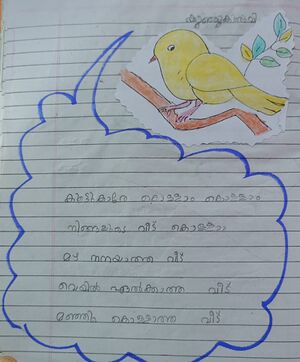 കൊള്ളാം കൊള്ളാം
നിങ്ങളുടെ വീട് കൊള്ളാം
മഴ നനയാത്ത വീട്
വെയിൽ ഏൽക്കാത്ത വീട്
മഞ്ഞും കൊള്ളാത്ത വീട്